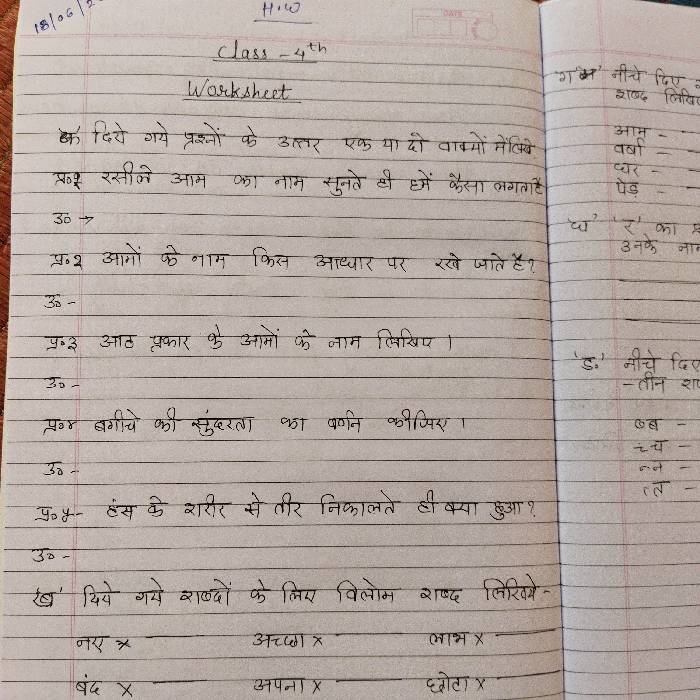 18/06/2
H.W
DATE
Class - 4th
Worksheet
'क' दिये गये प्रश्नों के उत्तर एक या दो वाक्यों में लिखे
प्र०१ रसीले आम का नाम सुनते ही हमें कैसा लगता है
उ० →
प्र०२ आमों के नाम किस आधार पर रखे जाते है?
उ० -
प्र०३ आठ प्रकार के आमों के नाम लिखिए।
उ० -
प्र०४ बगीचे की सुंदरता का वर्णन कीजिए।
उ० -
प्र०५- हंस के शरीर से तीर निकालते ही क्या हुआ?
उ० -
'ख' दिये गये शब्दों के लिए विलोम शब्द लिखिये -
नए × अच्छा × लाभ ×
बंद × अपना × छोटा ×
'ग' नीचे दिए
शब्द लिखि
आम -
वर्षा -
घर -
पेड़ -
'घ' 'र' का
उनके नाम
'ड.' नीचे दिए
-तीन श
ब्ब -
च्च -
न्न -
त्त -